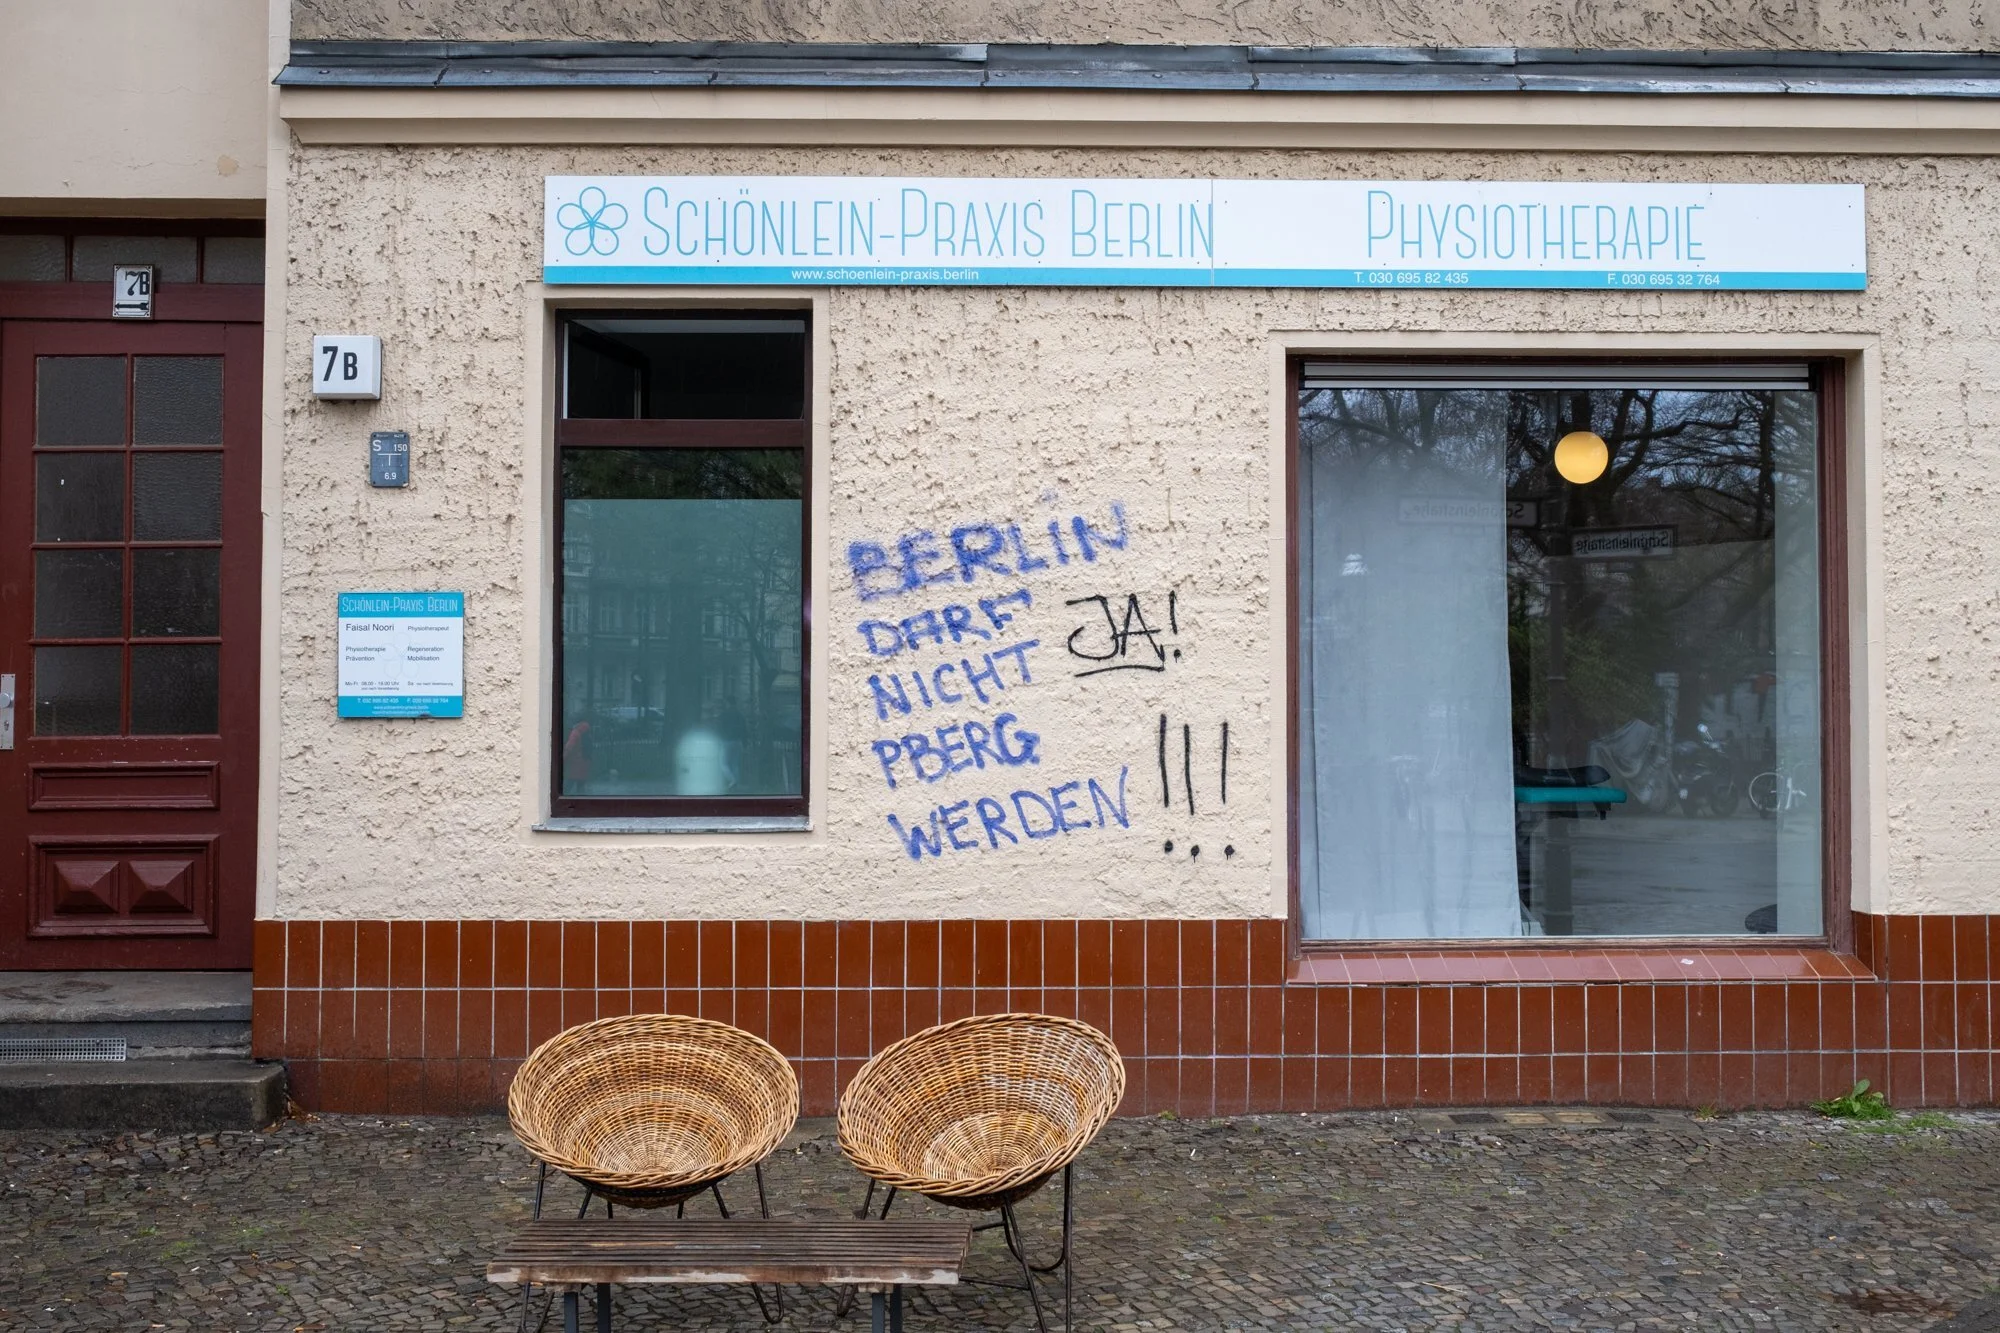 SCHÖNLEIN-PRAXIS BERLIN
PHYSIOTHERAPIE
www.schoenlein-praxis.berlin
T. 030 695 82 435
F. 030 695 32 764
7B
7B
S 150
6.9
BERLIN
DARF
NICHT
PBERG
WERDEN
JA!
!!!
SCHÖNLEIN-PRAXIS BERLIN
Faisal Noori Physiotherapeut
Physiotherapie Regeneration
Prävention Mobilisation
T. 030 695 82 435 F. 030 695 32 764
Schönleinstraße
Schönleinstraße